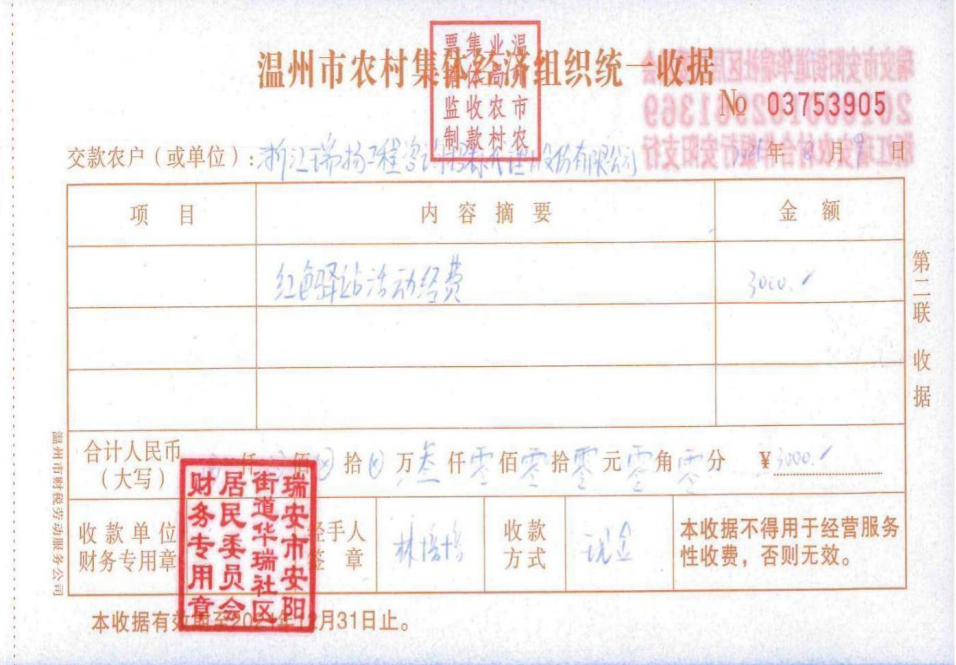 温州市农村集体经济组织统一收据
温州市农村集体经济收款票据监制
№ 03753905
交款农户（或单位）：浙江瑞扬工程咨询股份有限公司 年 月 9 日
项 目 内 容 摘 要 金 额
红色驿站活动经费 3000.
合计人民币（大写） 仟 佰 拾 万 叁 仟 零 佰 零 拾 零 元 零 角 零 分 ¥ 3000.
收款单位财务专用章 经手人签章 林 收款方式 现金 本收据不得用于经营服务性收费，否则无效。
瑞安市安阳街道华瑞社区居民委员会财务专用章
本收据有效期至20 年12月31日止。
第二联 收据
温州市财税劳动服务公司